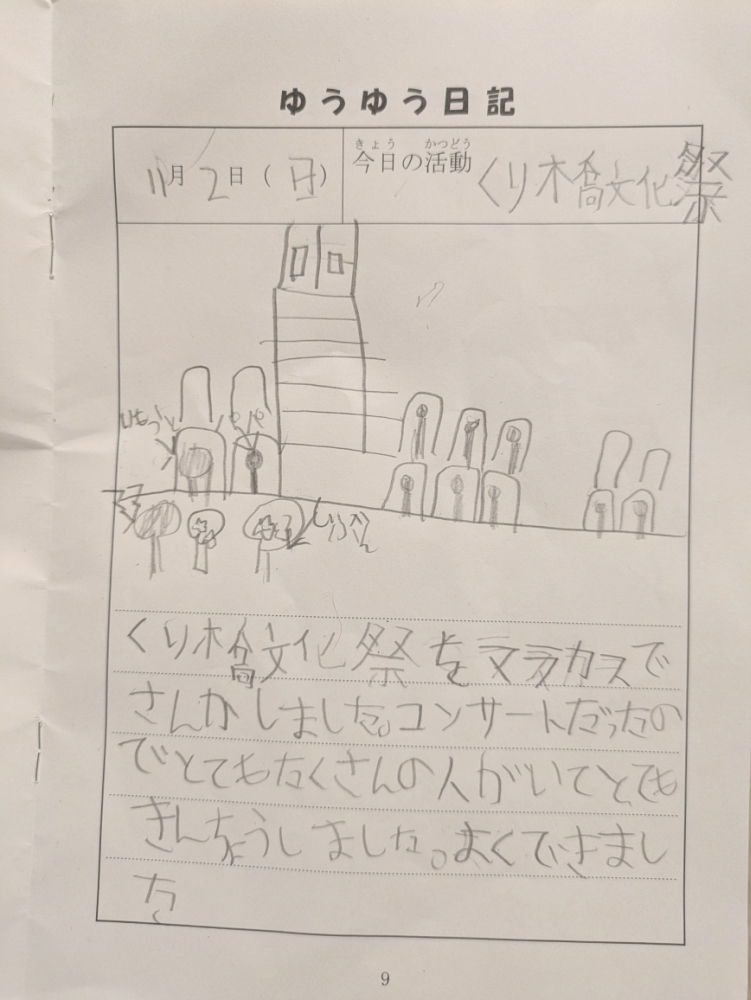 ゆうゆう日記
11月2日(日)
きょう かつどう
今日の活動 くり橋文化祭
いもうと
パパ
じぶん
くり橋文化祭をマラカスで
さんかしました。コンサートだったの
でとてもたくさんの人がいてとても
きんちょうしました。よくできまし
た
9